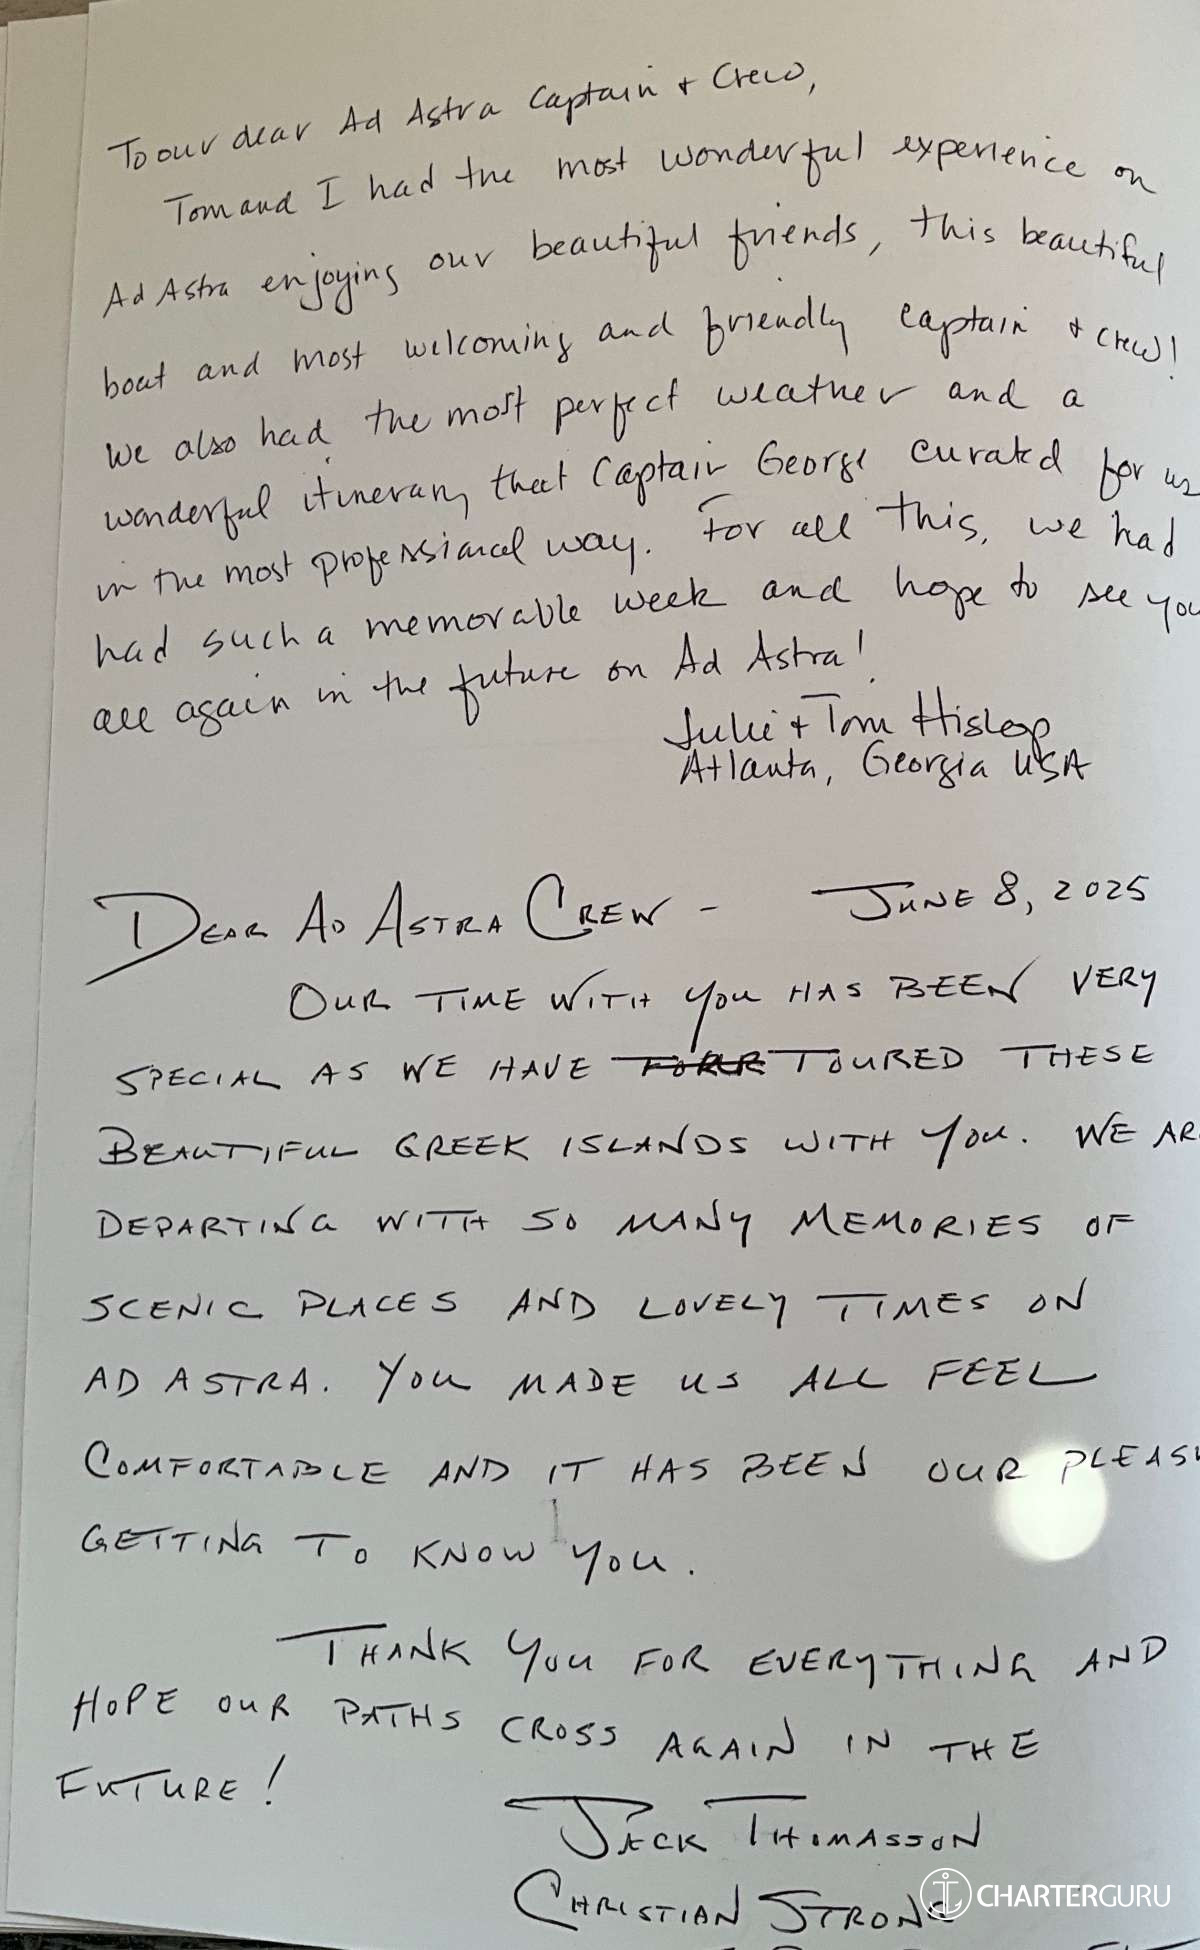 To our dear Ad Astra Captain + Crew,
Tom and I had the most wonderful experience on
Ad Astra enjoying our beautiful friends, this beautiful
boat and most welcoming and friendly captain + crew!
We also had the most perfect weather and a
wonderful itinerary that Captain George curated for us
in the most professional way. For all this, we had
had such a memorable week and hope to see you
all again in the future on Ad Astra!
Julie + Tom Hislop
Atlanta, Georgia USA
DEAR AD ASTRA CREW - JUNE 8, 2025
OUR TIME WITH YOU HAS BEEN VERY
SPECIAL AS WE HAVE TOURED THESE
BEAUTIFUL GREEK ISLANDS WITH YOU. WE AR
DEPARTING WITH SO MANY MEMORIES OF
SCENIC PLACES AND LOVELY TIMES ON
AD ASTRA. YOU MADE US ALL FEEL
COMFORTABLE AND IT HAS BEEN OUR PLEASU
GETTING TO KNOW YOU.
THANK YOU FOR EVERYTHING AND
HOPE OUR PATHS CROSS AGAIN IN THE
FUTURE!
JACK THOMASSON
CHRISTIAN STRONG
CHARTERGURU